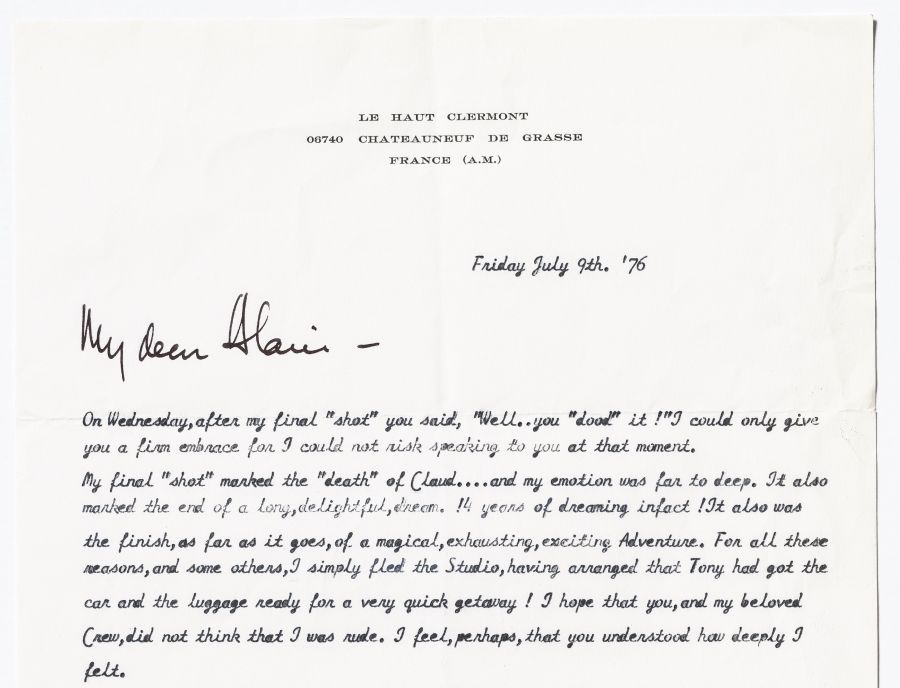 LE HAUT CLERMONT
06740 CHATEAUNEUF DE GRASSE
FRANCE (A.M.)
Friday July 9th. '76
My dear Alain –
On Wednesday,after my final "shot" you said, "Well..you "dood" it !"I could only give
you a firm embrace for I could not risk speaking to you at that moment.
My final "shot" marked the "death" of Claud....and my emotion was far to deep. It also
marked the end of a long,delightful,dream. !4 years of dreaming infact !It also was
the finish,as far as it goes,of a magical,exhausting,exciting Adventure. For all these
reasons,and some others,I simply fled the Studio,having arranged that Tony had got the
car and the luggage ready for a very quick getaway ! I hope that you,and my beloved
Crew,did not think that I was rude. I feel,perhaps,that you understood how deeply I
felt.